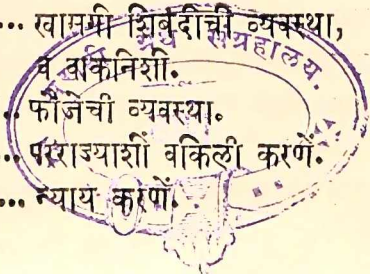 ... खासगी शिबंदीची व्यवस्था,
व वाकनिशी.
.. फौजेची व्यवस्था.
... परराज्याशीं वकिली करणें.
... न्याय करणें.
ग्रंथ संग्रहालय.